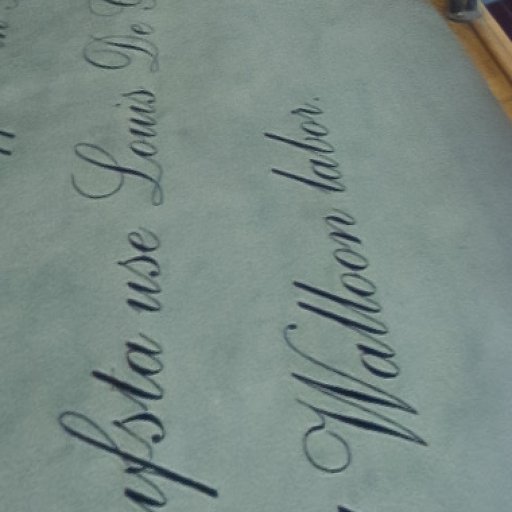 ufsta use Louis De
Walloon labor.